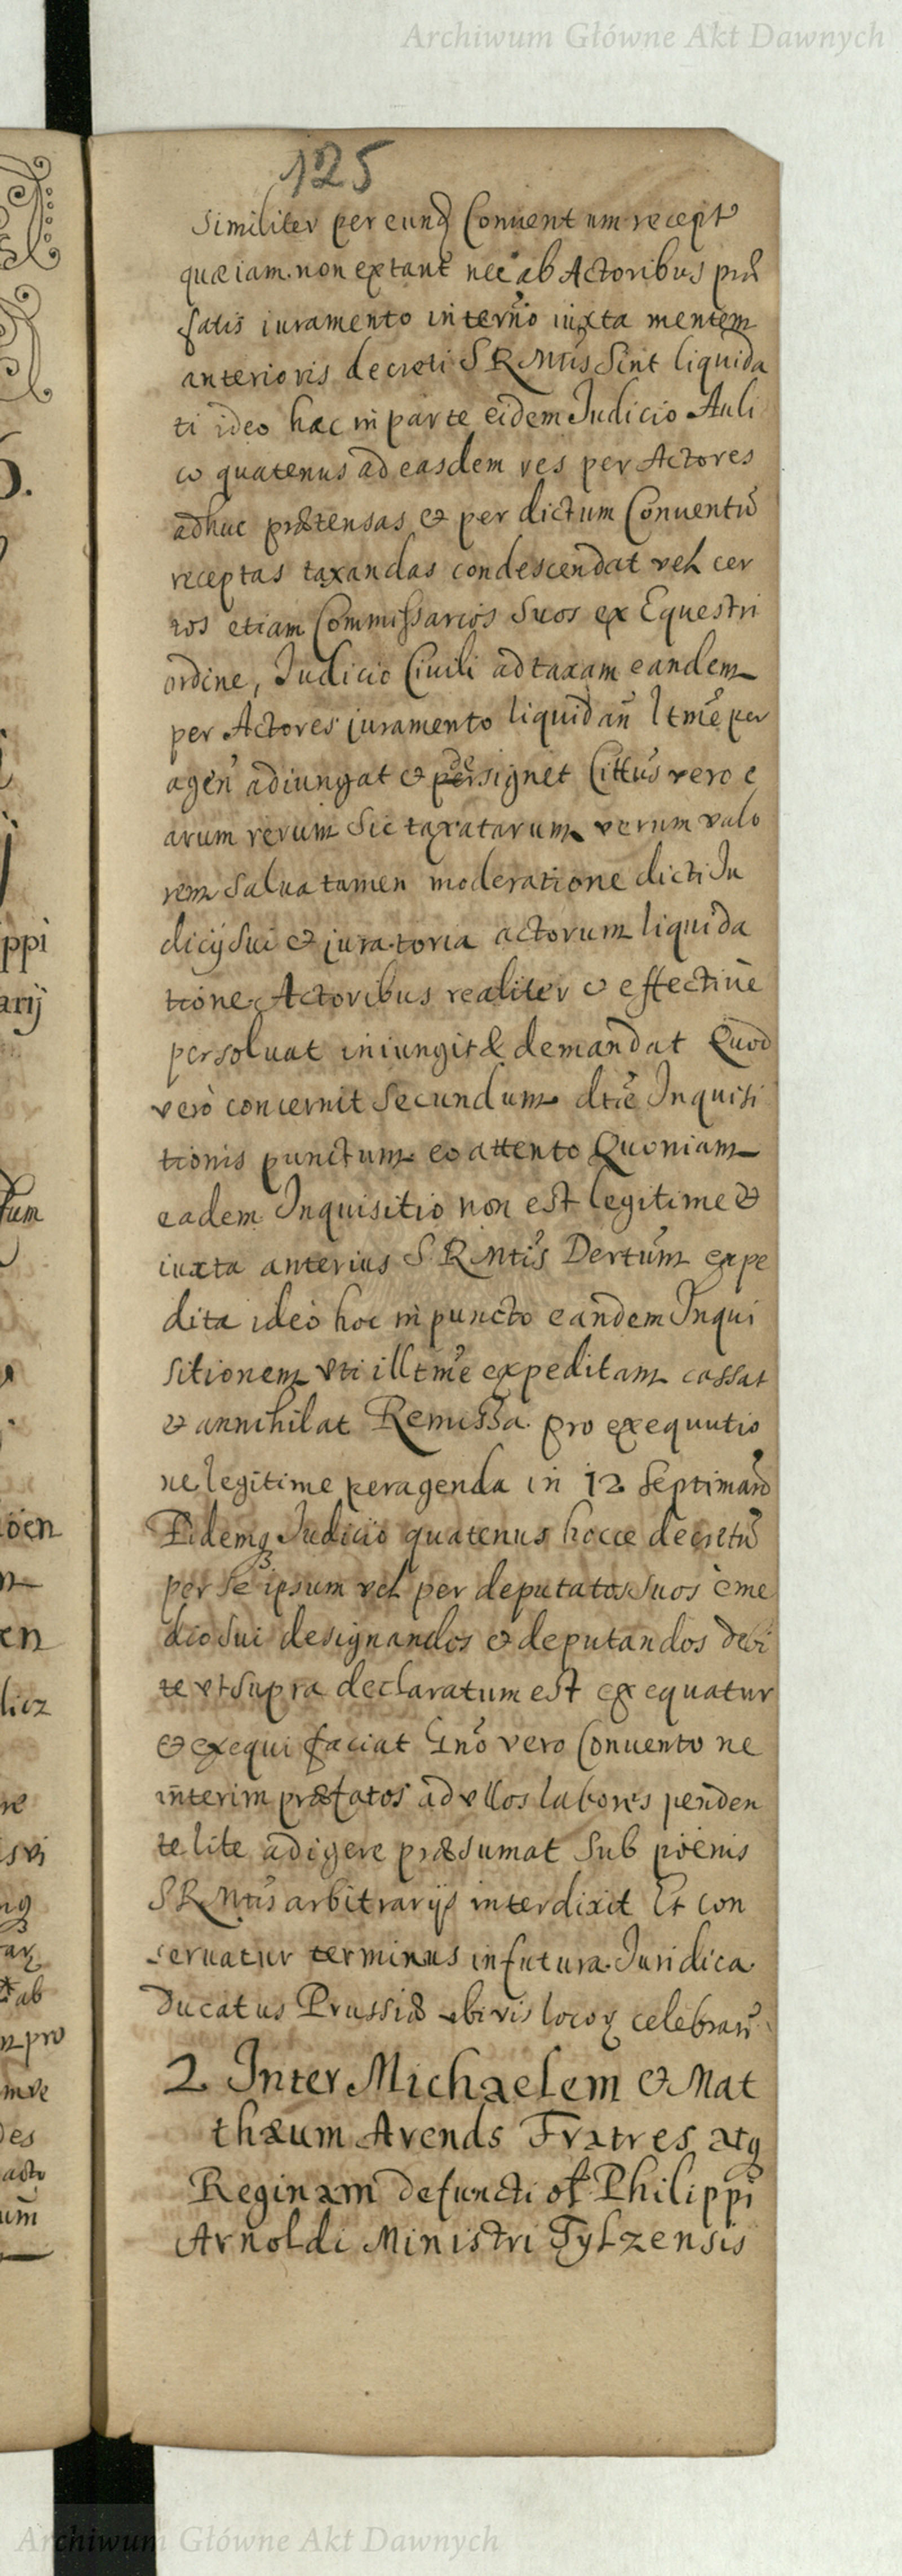 Archiwum Główne Akt Dawnych
125
Similiter per eunq Conuent um recept
quæ iam non extant nec ab Actoribus præ
fatis iuramento interño iuxta mentem
anterioris decreti S R Mtis Sint liquida
ti ideo hac in parte eidem Judicio Auli
co quatenus ad easdem res per Actores
adhuc prætensas & per dictum Conuentū
receptas taxandas condescendat vel cer
tos etiam Commissarios Suos ex Equestri
ordine, Judicio Ciuili ad taxam eandem
per Actores juramento liquidañ ltme per
ageñ adiungat & designet Cittus vero e
arum rerum Sic taxatarum verum valo
rem Salua tamen moderatione dicti Ju
dicij Sui & juratoria actorum liquida
tione Actoribus realiter & effectiue
persoluat iniungit & demandat Quod
verò concernit Secundum dtæ Inquisi
tionis punctum eo attento Quoniam
eadem Inquisitio non est legitime &
iuxta anterius S R Mtis Dertum expe
dita ideo hoc in puncto eandem Inqui
sitionem vti illtme expeditam cassat
& annihilat Remissa pro exequutio
ne legitime peragenda in 12 Septimañ
Eidemq Judicio quatenus hocce decretū
per Se ipsum vel per deputatos Suos è me
dio Sui designandos & deputandos debi
te vt Supra declaratum est exequatur
& exequi faciat Gno vero Conuento ne
interim præfatos ad vllos labores penden
te lite adigere præsumat Sub poenis
S R Mtis arbitrarijs interdixit Et con
seruatur terminus in futura Juridica
Ducatus Prussiæ vbivis locoꝝ celebrañ
2 Inter Michaelem & Mat
thæum Arends Fratres atq
Reginam defuncti ol Philippi
Arnoldi Ministri Tylzensis
Archiwum Główne Akt Dawnych